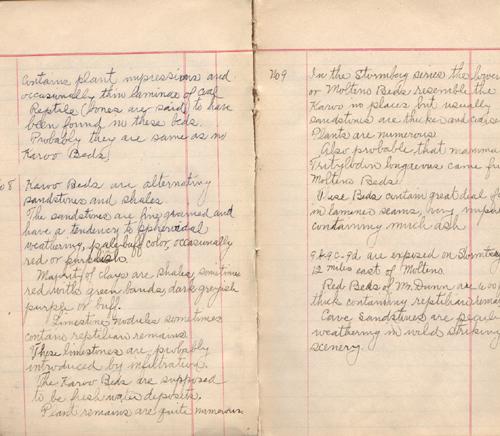 contains plant impressions and
occasionally thin laminae of coal
Reptile (bones are said) to have
been found in these beds.
Probably they are same as no
Karoo Beds
Karoo Beds are alternating
sandstones and shales
The sandstones are fine grained and
have a tendency to spheroidal
weathering, pale buff color, occasionally
red or purplish
Majority of clays are shales, sometimes
red with green bands, dark grayish
purple or buff.
Limestine nodules sometimes
contain reptilian remains
These limestones are probably
introduced by infiltration.
The Karoo Beds are supposed
to be fresh water deposits.
Plant remains are quite numerous
No 9 In the Stormberg series the lower
or Molteno Beds resemble the
Karoo no places but usually
sandstones are thicker and coarse
Plants are numerous
Also probable that mamma
Tritylodon longaevus came fr
Molteno Beds
These Beds contain great deal of
in laminae seams, very impure
containing much ash
9 & 9c-9d are exposed on Stormberg
12 miles east of Molteno
Red Beds of Mr. Dunn are 600
thick containing reptilian remain
Cave Sandstones are
weathering in wild striking
scenery.